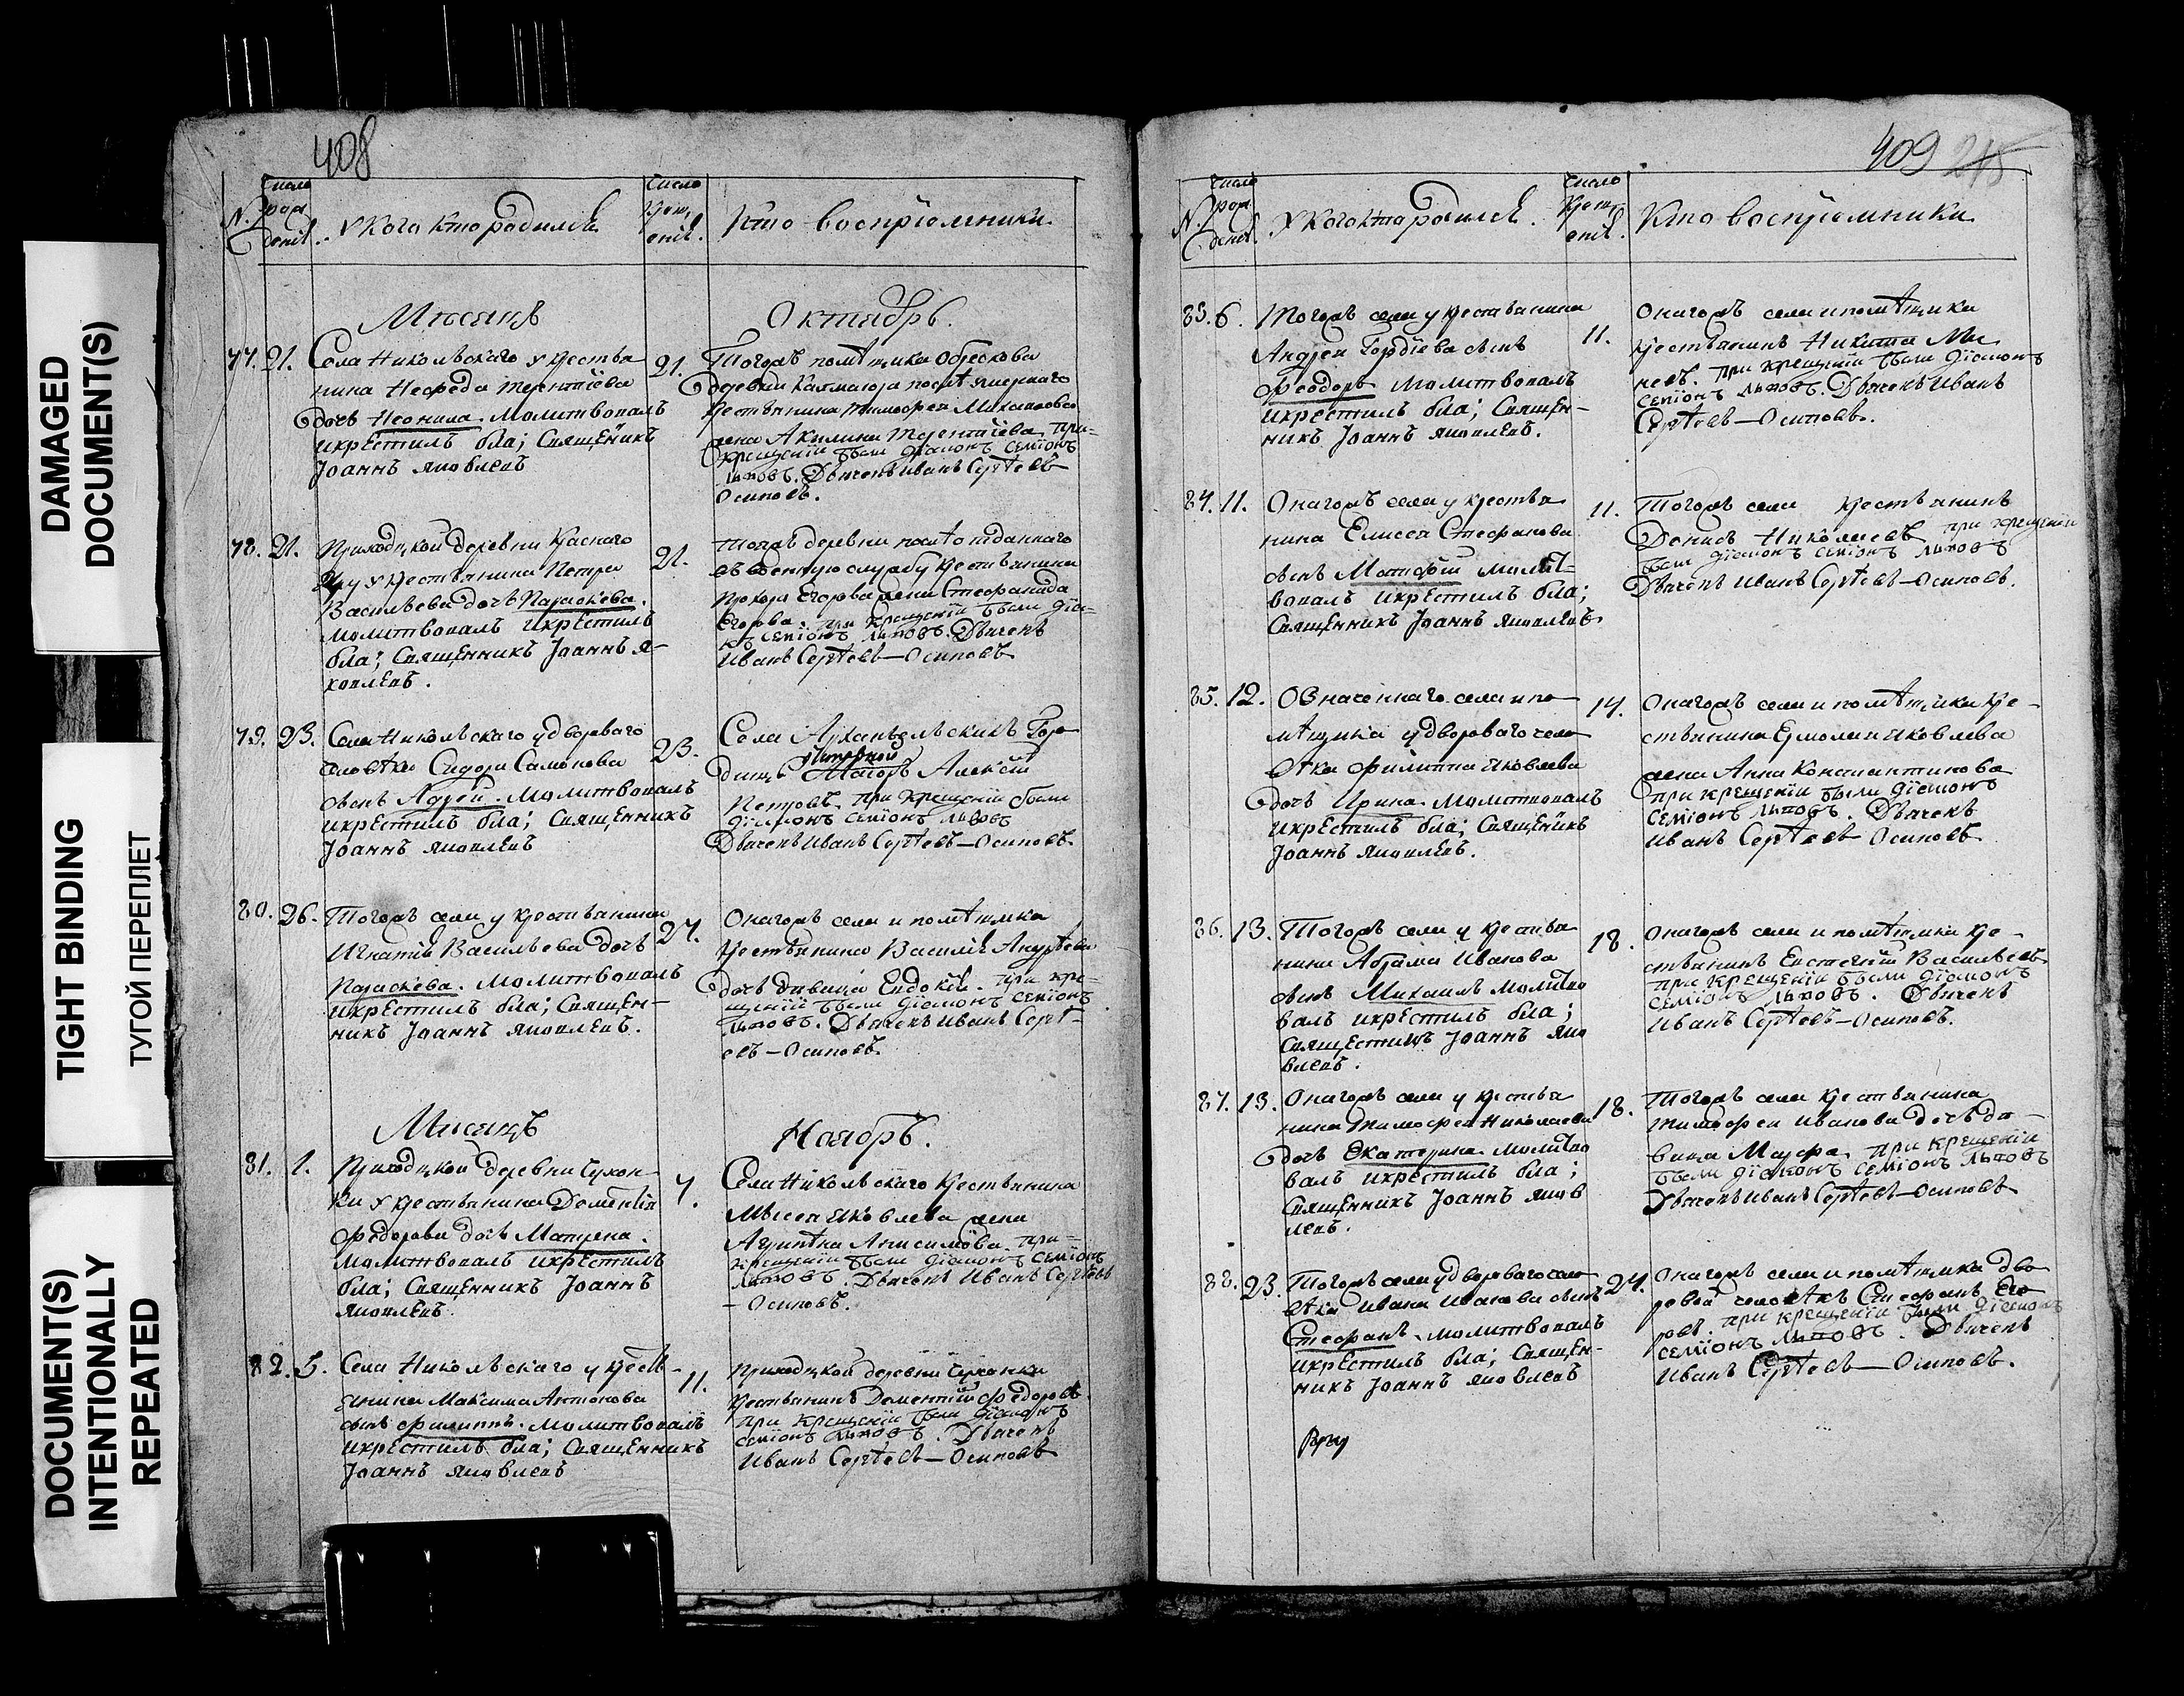 DAMAGED
DOCUMENT(S)
TIGHT BINDING
ТУГОЙ ПЕРЕПЛЕТ
DOCUMENT(S)
INTENTIONALLY
REPEATED
408
N.
Число
рож
денiѧ.
У кого кто родился
Число
крещ
енiѧ.
Кто восприемники.
Месяцъ
Октябрь.
77. 21.
Села Никольскаго у крестья
нина Нефеда Терентiева
дочь Неонила. Молитвовалъ
и крестилъ бла; Священикъ
Iоаннъ Яковлевъ
21.
Тогожъ помѣщика Обрескова
деревни
крестьянина Тимофея Михайлова
жена Акилина Терентiева при
крещенiи были дiаконъ Семiонъ
Львовъ. Дьячекъ Иванъ Сергѣевъ
Осиповъ.
78. 21.
Приходцкой деревни Краснаго
у крестьянина Петра
Васильева дочь Параскева.
молитвовалъ и крестилъ
бла; Священникъ Iоаннъ Я-
ковлевъ.
21.
Тогожъ деревни отданнаго
въ военную службу крестьянина
Прохора Егорова жена Стефанида
Егорова. при крещенiи были дiа-
къ Семiонъ Львовъ. Дьячекъ
Иванъ Сергѣевъ–Осиповъ
79. 23.
Села Никольскаго у двороваго
человѣка Сидора Самонова
сынъ Андрей. Молитвовалъ
и крестилъ бла; Священникъ
Iоаннъ Яковлевъ
23.
Села Архангельскихъ Горо
дищь Маiоръ Алексѣй
Петровъ. при крещенiи были
дiаконъ Семiонъ Львовъ
Дьячекъ Иванъ Сергѣевъ–Осиповъ.
80. 26.
Тогожъ села у крестьянина
Игнатiя Васильева дочь
Параскева. Молитвовалъ
и крестилъ бла; Священ-
никъ Iоаннъ Яковлевъ.
27.
Онагожъ села и помѣщика
крестьянина Василiя Андрѣева
дочь дѣвица Евдокiя. при кре-
щенiи были дiаконъ Семiонъ
Львовъ. Дьячекъ Иванъ Сергѣ-
евъ–Осиповъ.
Месяцъ
Ноябрь.
81. 1.
Приходцкой деревни Сухон
ки у крестьянина Доментiя
Федорова дочь Матрена.
Молитвовалъ и крестилъ
бла; Священникъ Iоаннъ
Яковлевъ.
7.
Села Никольскаго крестьянина
Мысея Яковлева жена
Агрипѣна Анисимова. при
крещенiи были дiаконъ Семiонъ
Львовъ. Дьячекъ Иванъ Сергѣевъ
–Осиповъ.
82. 5.
Села Никольскаго у кресть-
янина Максима Антонова
сынъ Филиппъ. Молитвовалъ
и крестилъ бла; Священникъ
Iоаннъ Яковлевъ
11.
Приходцкой деревни Сухонки
крестьянинъ Доментiй Федоровъ.
при крещенiи были дiаконъ
Семiонъ Львовъ. Дьячекъ
Иванъ Сергѣевъ–Осиповъ
409 215
N.
Число
рож
денiѧ.
У кого кто родился.
Число
крещ
енiѧ.
Кто восприемники
83. 6.
Тогожъ села у крестьянина
Андрея Гордiева сынъ
Феодоръ Молитвовалъ
и крестилъ бла; Священ-
никъ Iоаннъ Яковлевъ.
11.
Онагожъ села и помѣщика
крестьянинъ Никита Ми
невъ. при крещенiи были дiаконъ
Семiонъ Львовъ. Дьячекъ Иванъ
Сергѣевъ–Осиповъ.
84. 11.
Онагожъ села у крестья
нина Елисея Стефанова
сынъ Матфей молит-
вовалъ и крестилъ бла;
Священникъ Iоаннъ Яковлевъ.
11.
Тогожъ села крестьянинъ
Денисъ Николаевъ при крещенiи
были дiаконъ Семiонъ Львовъ
Дьячекъ Иванъ Сергѣевъ–Осиповъ.
85. 12.
Означеннаго села и по
мѣщика у двороваго чело
вѣка Филиппа Яковлева
дочь Ирина. Молитвовалъ
и крестилъ бла; Священикъ
Iоаннъ Яковлевъ.
14.
Онагожъ села и помѣщика кре-
стьянина Ермолая Яковлева
жена Анна Константинова
при крещенiи были дiаконъ
Семiонъ Львовъ. Дьячекъ
Иванъ Сергѣевъ Осиповъ.
86. 13.
Тогожъ села у крестья
нина Абрама Иванова
сынъ Михаилъ молитво
валъ и крестилъ бла;
Священикъ Iоаннъ Яко
влевъ.
18.
Онагожъ села и помѣщика кре-
стьянинъ Евстегнiй Васильевъ
при крещенiи были дiаконъ
Семiонъ Львовъ. Дьячекъ
Иванъ Сергѣевъ–Осиповъ.
87. 13.
Онагожъ села у крестья
нина Тимофея Николаева
дочь Екатерина. молитво
валъ и крестилъ бла;
Священникъ Iоаннъ Яков
левъ.
18.
Тогожъ села крестьянина
Тимофея Иванова дочь дѣ-
вица Марфа. при крещенiи
были дiаконъ Семiонъ Львовъ
Дьячекъ Иванъ Сергѣевъ–Осиповъ
88. 23.
Тогожъ села у двороваго чело
вѣка Ивана Иванова сынъ
Стефанъ. молитвовалъ
и крестилъ бла; Священ-
никъ Iоаннъ Яковлевъ
24.
Онагожъ села и помѣщика дво
ровой человѣкъ Стефанъ Его
ровъ. при крещенiи были дiаконъ
Семiонъ Львовъ. Дьячекъ
Иванъ Сергѣевъ–Осиповъ.